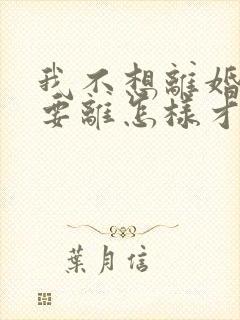 我不想離婚
要離怎樣才
葉月信